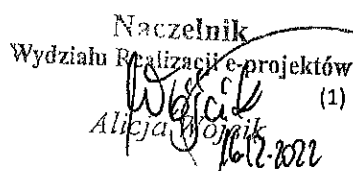 Naczelnik
Wydziału Realizacji e-projektów
(1)
Wójcik
Alicja Wójcik
16.12.2022